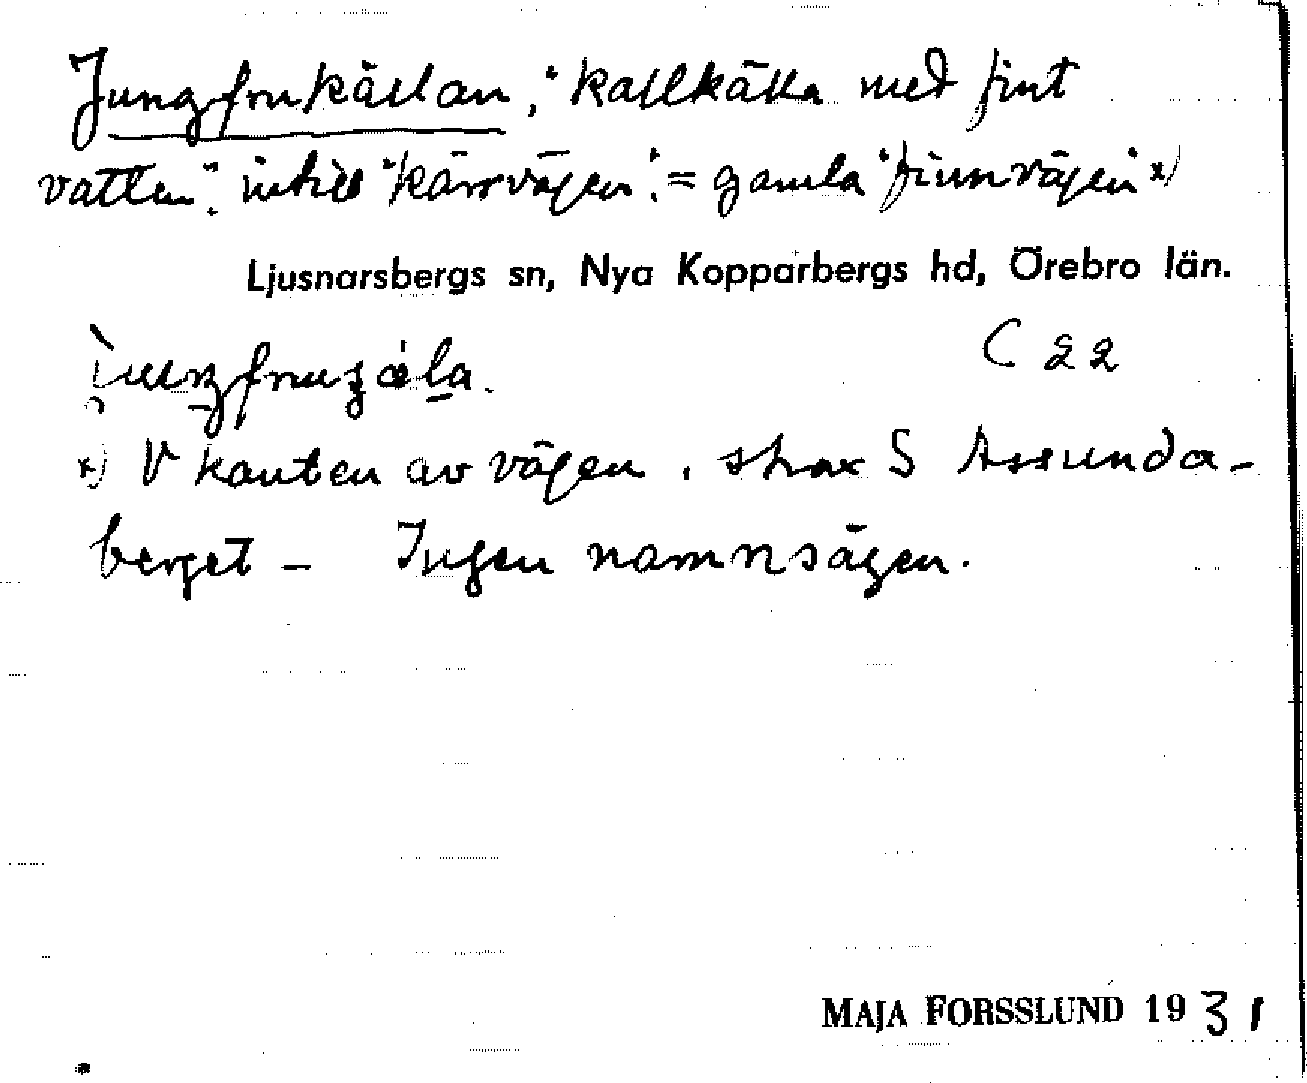 Jungfrukällan, "kallkälla med fint
vatten", intill "kärrvägen" = gamla "finnvägen" x)
Ljusnarsbergs sn, Nya Kopparbergs hd, Örebro län.
C 22
x) V kanten av vägen, strax S Assunda-
berget – Ingen namnsägen.
MAJA FORSSLUND 1931